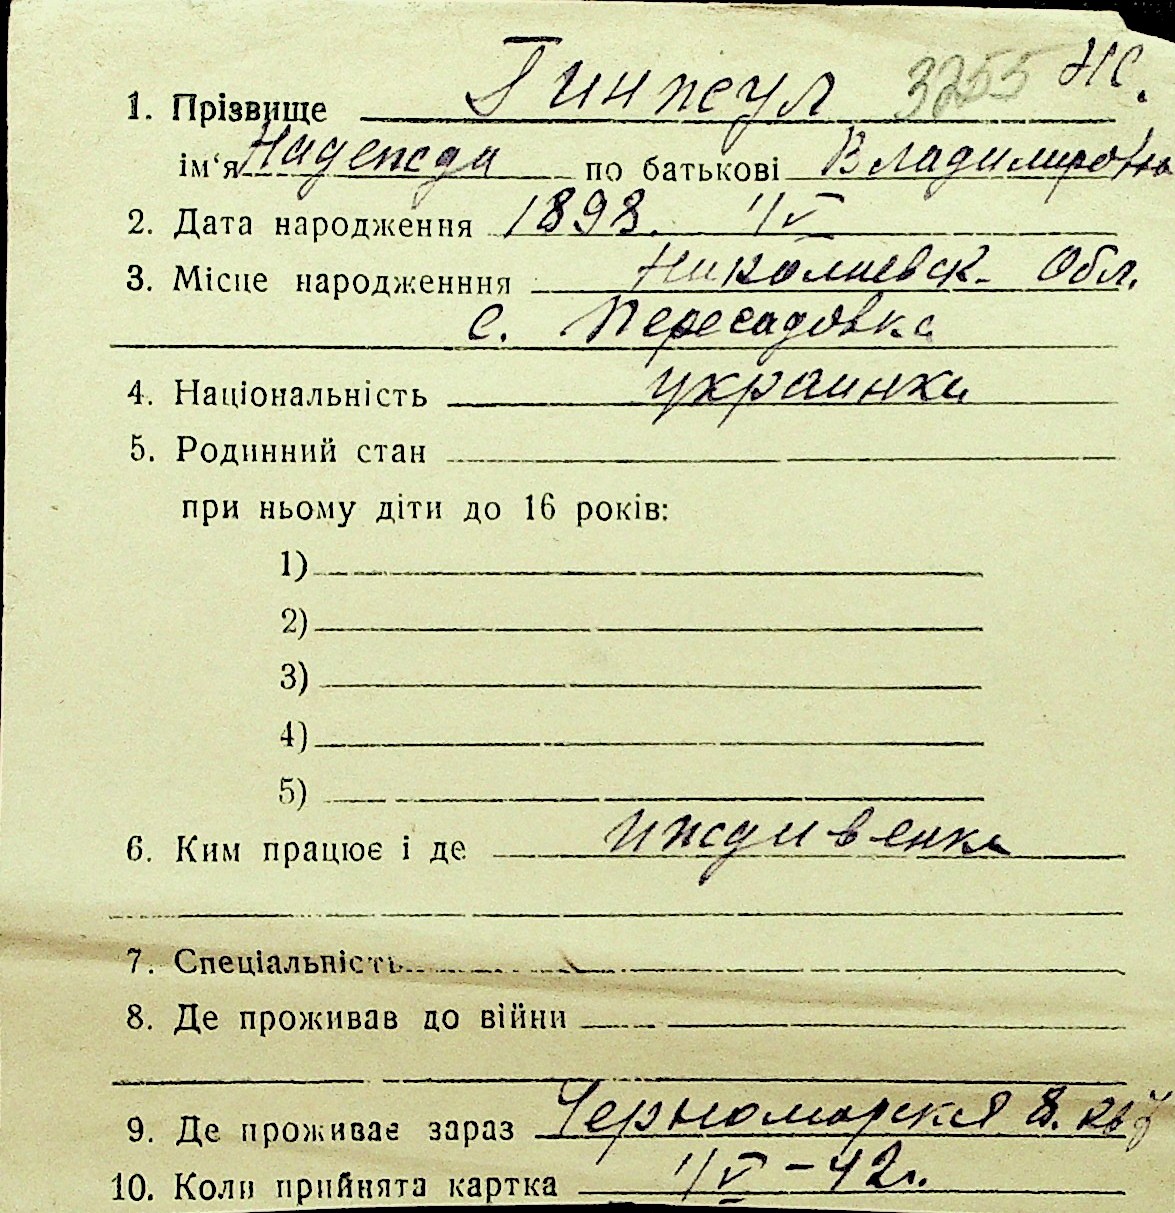 1. Прізвище Гинжул 3255 Нс.
ім‘я Надежда по батькові Владимировна
2. Дата народження 1898. 1/V
3. Місце народженння Николаевск. Обл.
с. Пересадовка
4. Національність украинка
5. Родинний стан
при ньому діти до 16 років:
1)
2)
3)
4)
5)
6. Ким працює і де иждивенка
7. Спеціальність
8. Де проживав до війни
9. Де проживає зараз Черноморская 8. кв
10. Коли прийнята картка 1/V – 42 г.